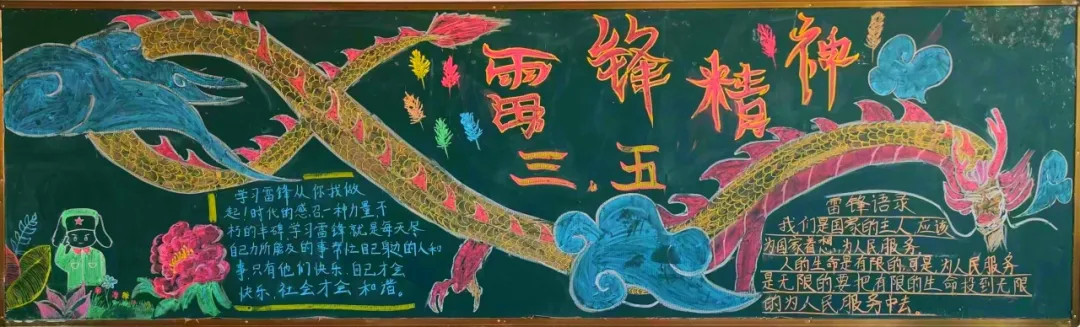 雷锋精神
三.五
学习雷锋从你我做
起!时代的感召一种力量不
朽的丰碑学习雷锋就是每天尽
自己力所能及的事帮忙自己身边的人和
事,只有他们快乐,自己才会
快乐、社会才会和谐。
雷锋语录
我们是国家的主人应该
为国家着想,为人民服务
人的生命是有限的,可是,为人民服务
是无限的要把有限的生命投到无限
的为人民服务中去。